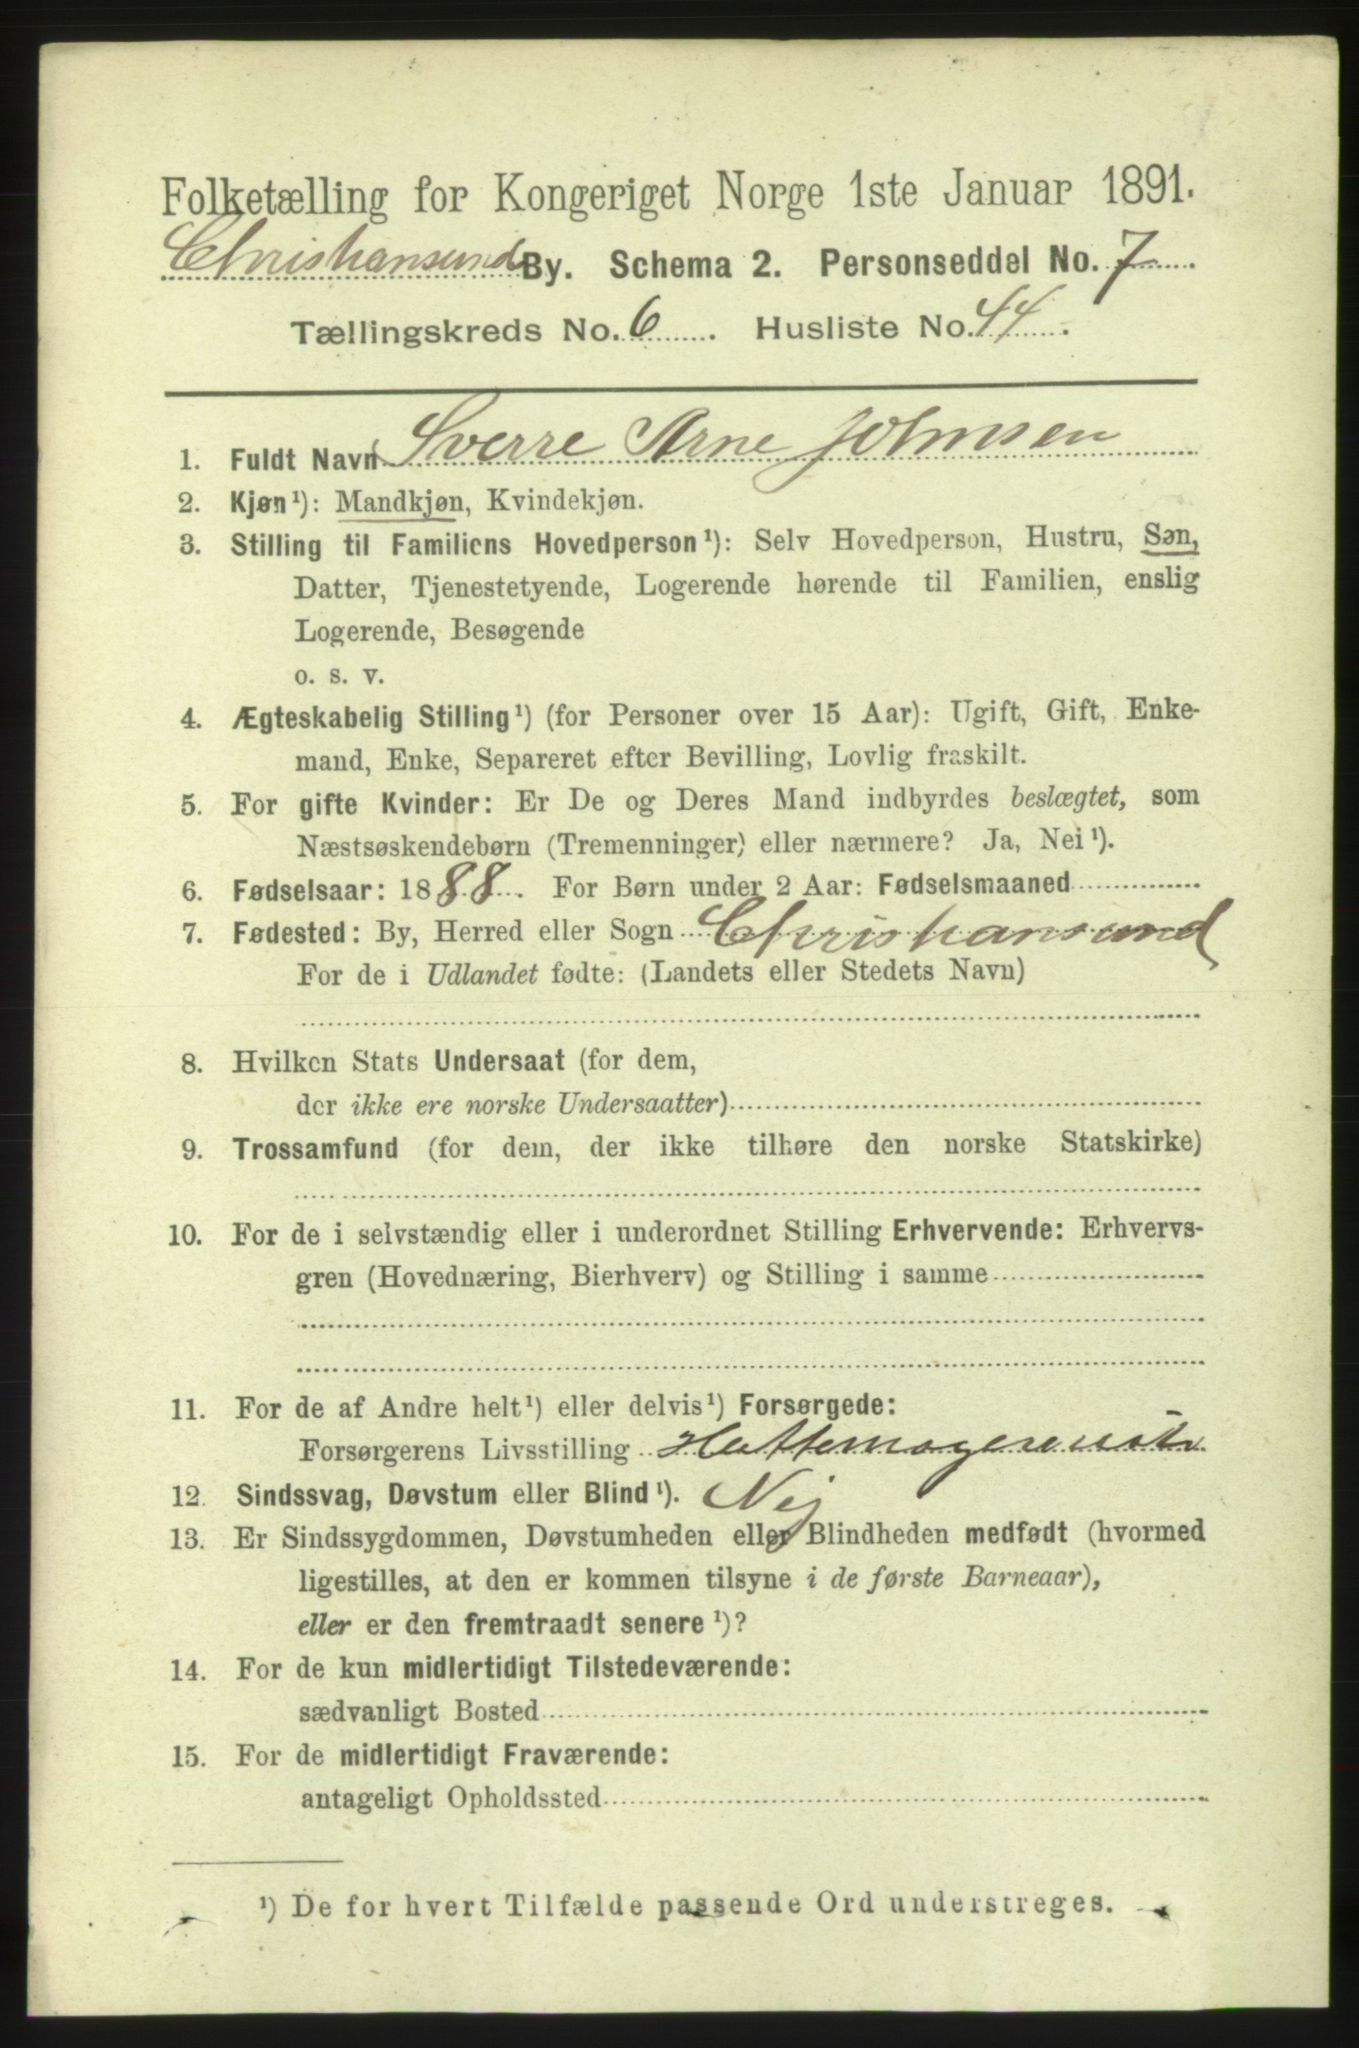 Folketælling for Kongeriget Norge 1ste Januar 1891.
Christiansund By. Schema 2. Personseddel No. 7
Tællingskreds No. 6. Husliste No. 44.
1. Fuldt Navn Sverre Arne Johnsen
2. Kjøn¹): Mandkjøn, Kvindekjøn.
3. Stilling til Familiens Hovedperson¹): Selv Hovedperson, Hustru, Søn,
Datter, Tjenestetyende, Logerende hørende til Familien, enslig
Logerende, Besøgende
o. s. v.
4. Ægteskabelig Stilling¹) (for Personer over 15 Aar): Ugift, Gift, Enke-
mand, Enke, Separeret efter Bevilling, Lovlig fraskilt.
5. For gifte Kvinder: Er De og Deres Mand indbyrdes beslægtet, som
Næstsøskendebørn (Tremenninger) eller nærmere? Ja, Nei¹).
6. Fødselsaar: 1888. For Børn under 2 Aar: Fødselsmaaned
7. Fødested: By, Herred eller Sogn Christiansund
For de i Udlandet fødte: (Landets eller Stedets Navn)
8. Hvilken Stats Undersaat (for dem,
der ikke ere norske Undersaatter)
9. Trossamfund (for dem, der ikke tilhøre den norske Statskirke)
10. For de i selvstændig eller i underordnet Stilling Erhvervende: Erhvervs-
gren (Hovednæring, Bierhverv) og Stilling i samme
11. For de af Andre helt¹) eller delvis¹) Forsørgede:
Forsørgerens Livsstilling
12. Sindssvag, Døvstum eller Blind¹). Nej
13. Er Sindssygdommen, Døvstumheden eller Blindheden medfødt (hvormed
ligestilles, at den er kommen tilsyne i de første Barneaar),
eller er den fremtraadt senere¹)?
14. For de kun midlertidigt Tilstedeværende:
sædvanligt Bosted
15. For de midlertidigt Fraværende:
antageligt Opholdssted
¹) De for hvert Tilfælde passende Ord understreges.